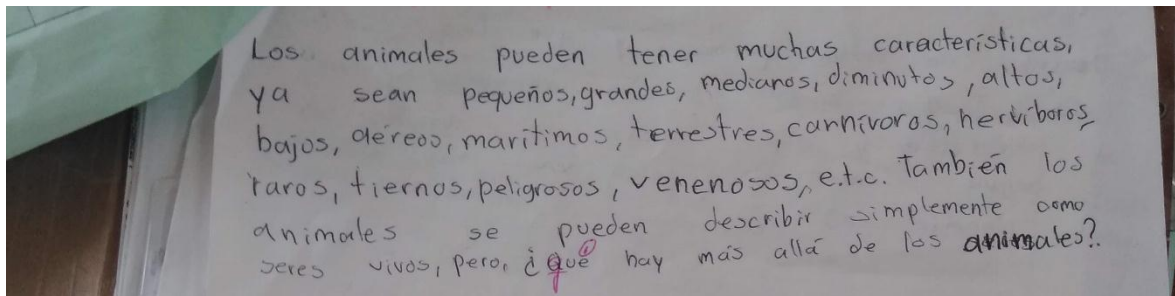 Los animales pueden tener muchas características,
ya sean pequeños, grandes, medianos, diminutos, altos,
bajos, aéreos, marítimos, terrestres, carnívoros, hervíboros,
raros, tiernos, peligrosos, venenosos, e.t.c. También los
animales se pueden describir simplemente como
seres vivos, pero, ¿qué hay más allá de los animales?.